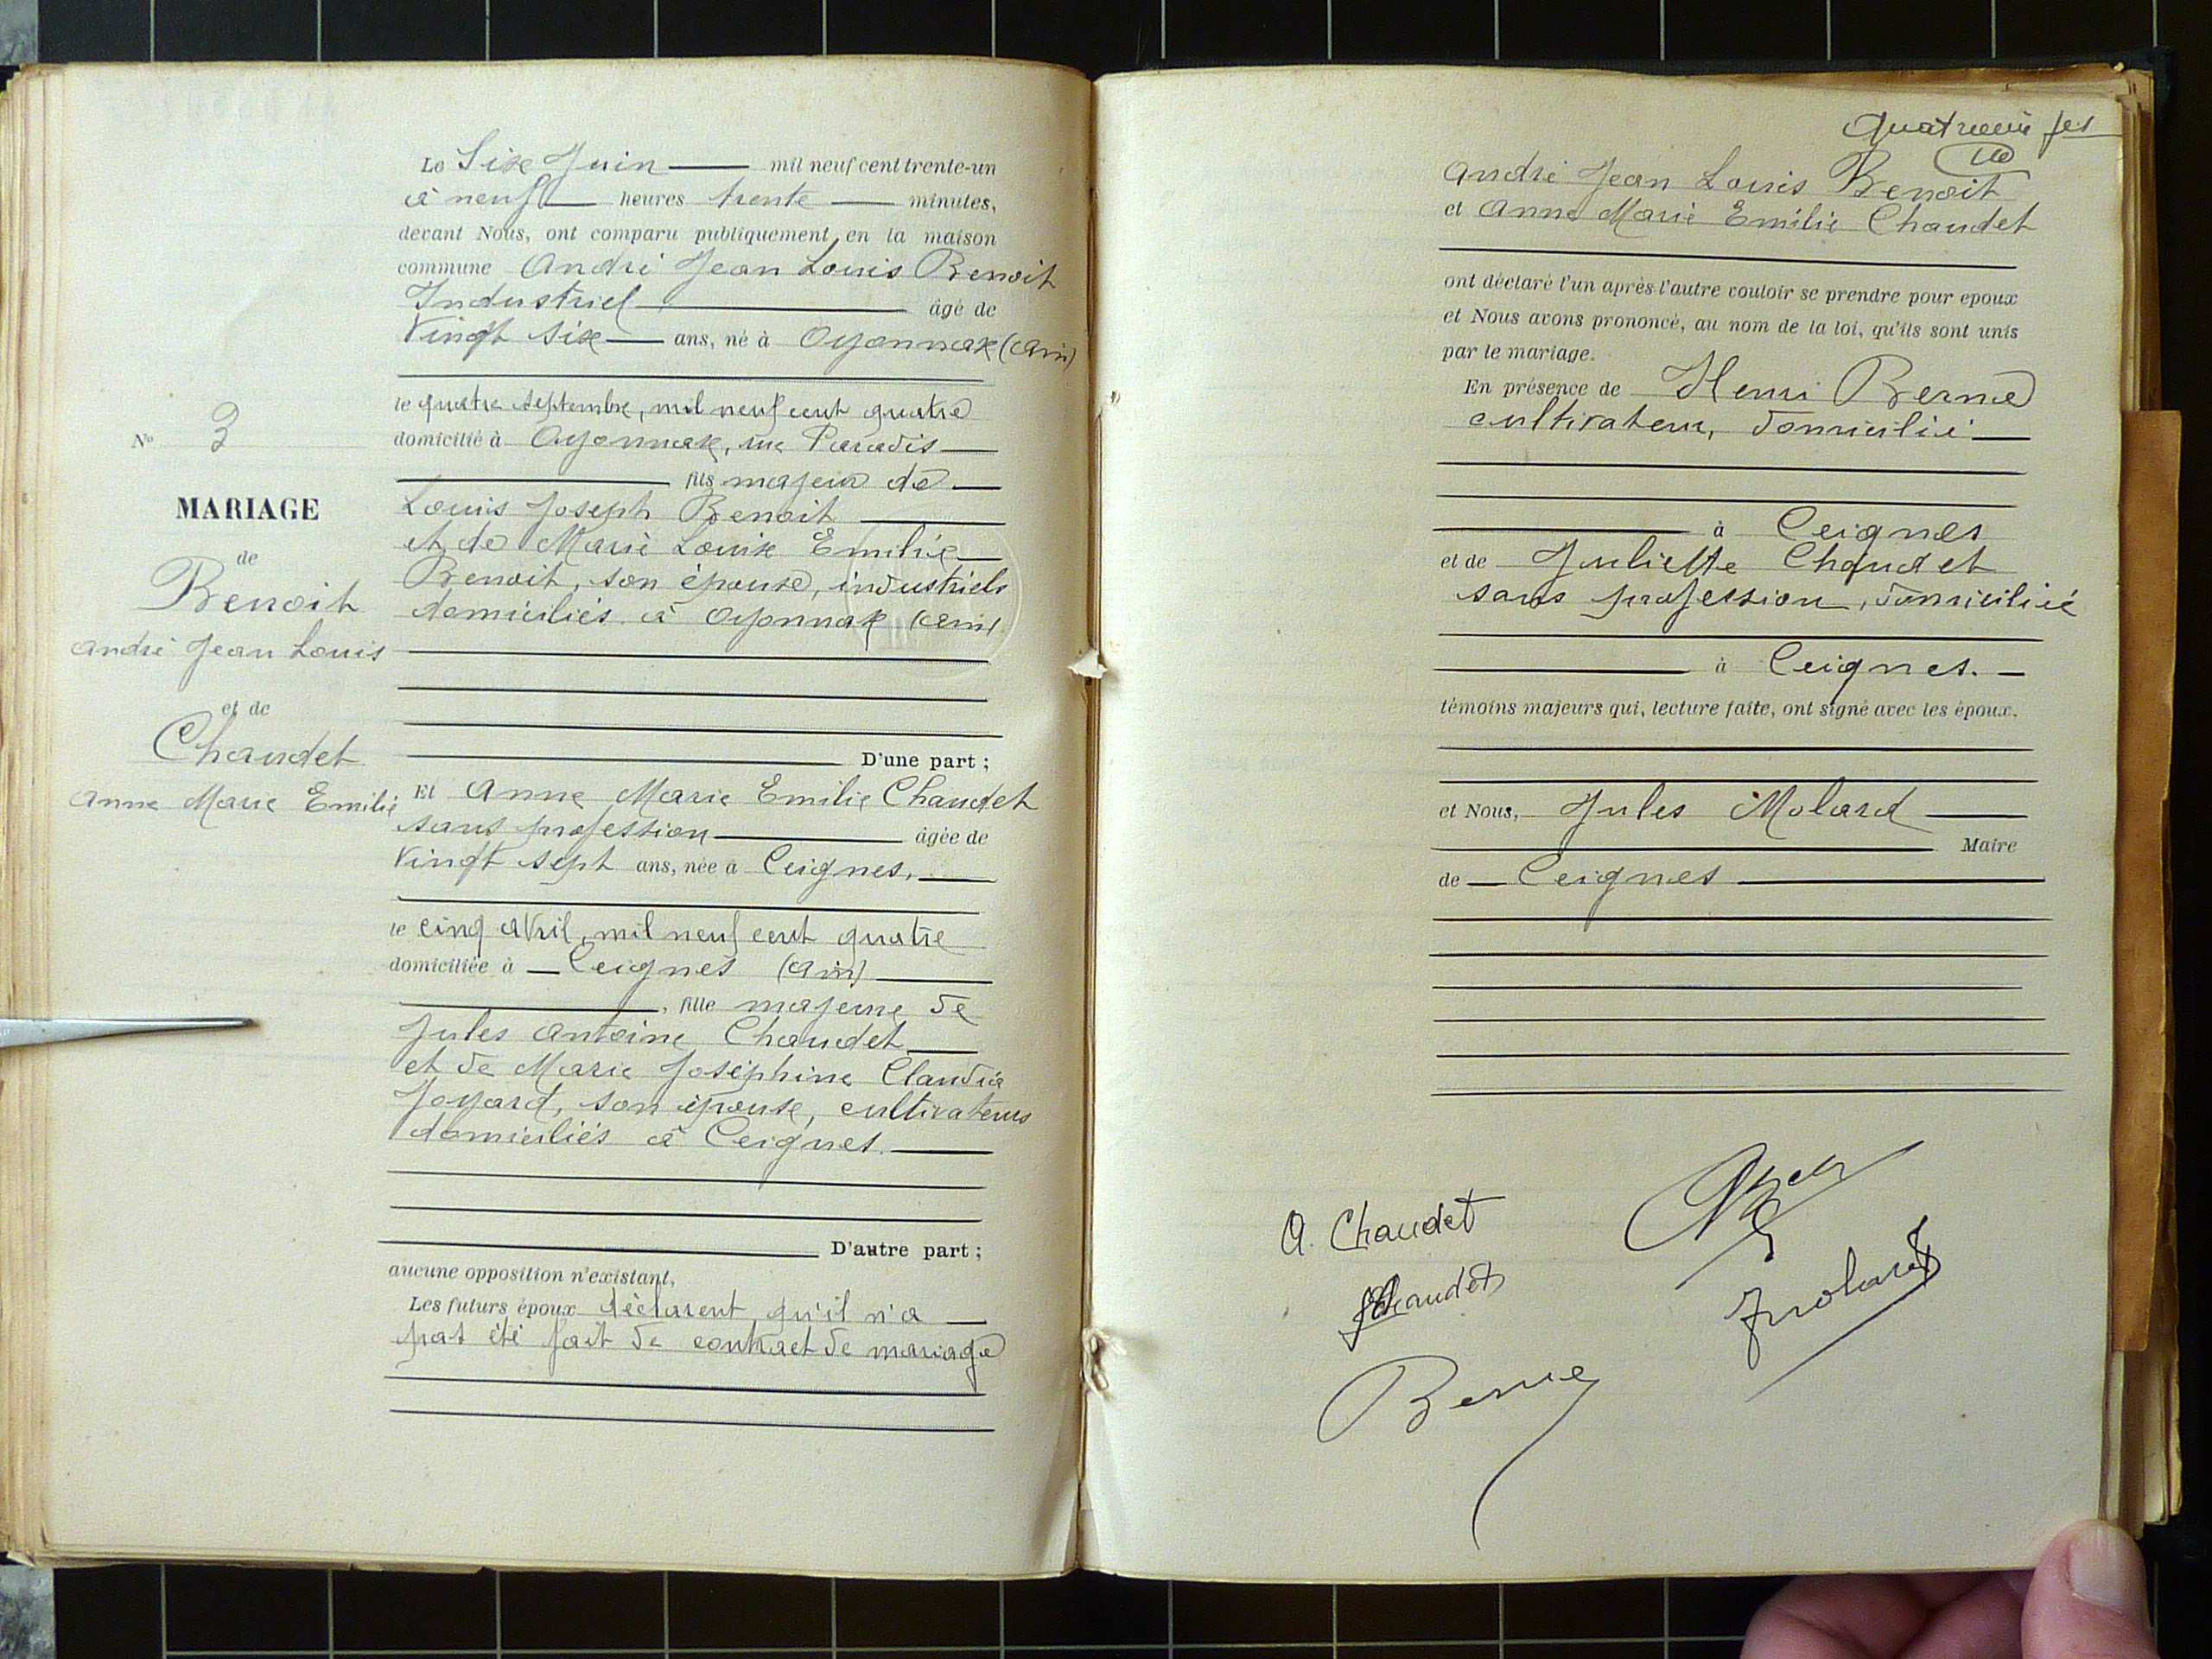 Le Six Juin mil neuf cent trente-un
à neuf heures trente minutes,
devant Nous, ont comparu publiquement en la maison
commune André Jean Louis Benoit
Industriel âgé de
Vingt six ans, né à Oyonnax (Ain)
le quatre septembre, mil neuf cent quatre
domicilié à Oyonnax, rue Paradis
fils majeur de
Louis Joseph Benoit
et de Marie Louise Emilie
Benoit, son épouse, industriels
domiciliés à Oyonnax (Ain)
D'une part ;
Et Anne Marie Emilie Chaudet
sans profession âgée de
Vingt sept ans, née à Ceignes,
le cinq avril, mil neuf cent quatre
domiciliée à Ceignes (Ain)
, fille majeure de
Jules Antoine Chaudet
et de Marie Joséphine Claudia
Joyard, son épouse, cultivateurs
domiciliés à Ceignes.
D'autre part ;
aucune opposition n'existant,
Les futurs époux déclarent qu'il n'a
pas été fait de contract de mariage
No 3
MARIAGE
de
Benoit
André Jean Louis
et de
Chaudet
Anne Marie Emilie
André Jean Louis Benoit
et Anne Marie Emilie Chaudet
ont déclaré l'un après l'autre vouloir se prendre pour epoux
et Nous avons prononcé, au nom de la loi, qu'ils sont unis
par le mariage.
En présence de Henri Berne
cultivateur, domicilié
à Ceignes
et de Juliette Chaudet
sans profession, domiciliée
à Ceignes.
témoins majeurs qui, lecture faite, ont signé avec les époux.
et Nous, Jules Molard
Maire
de Ceignes
A. Chaudet
JChaudet
Berne
JMolard